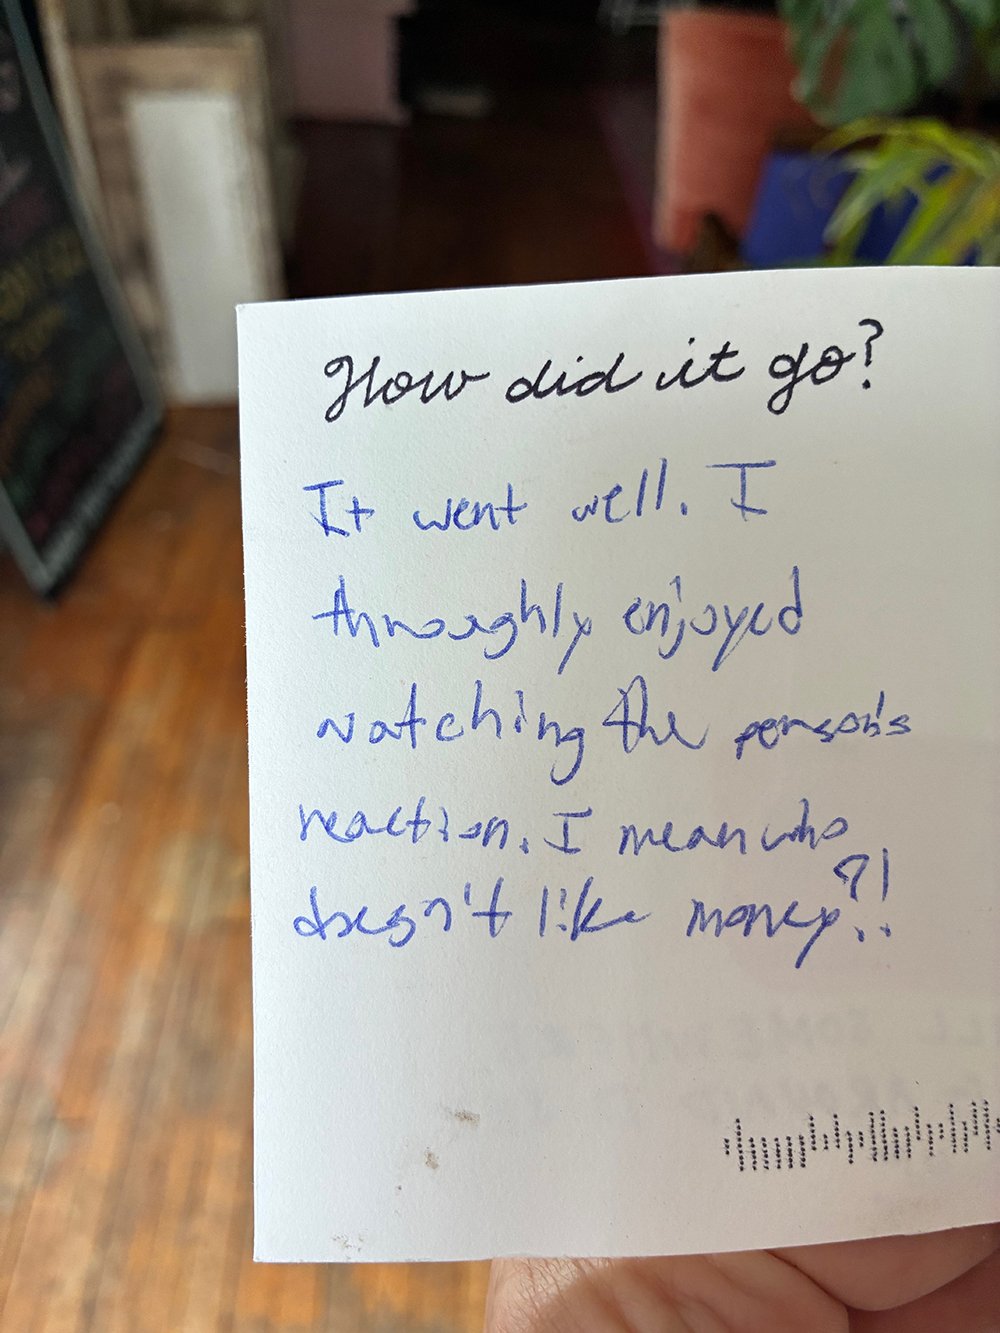 How did it go?
It went well. I
thoroughly enjoyed
watching the person's
reaction. I mean who
doesn't like money?!